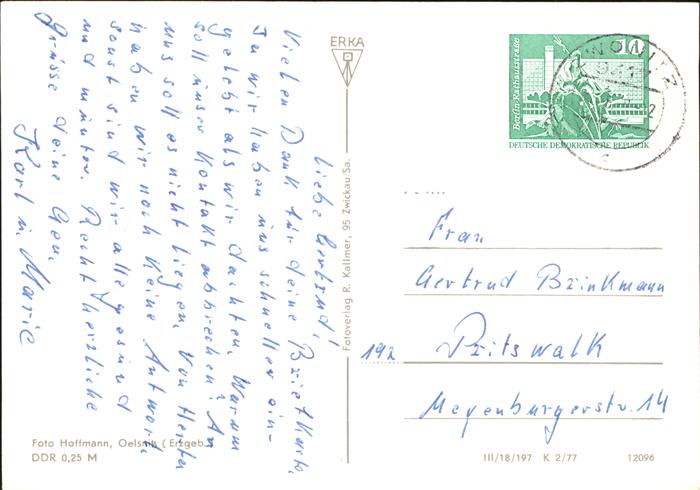 Liebe Gertrud!
Vielen Dank für deine Briefkarte,
Ja wir haben uns schneller ein-
gelebt als wir dachten. Warum
soll unser Kontakt abbrechen? An
uns soll es nicht liegen. Von Herta
haben wir noch keine Antwort,
sonst sind wir alle gesund
und munter. Recht herzliche
Grüsse deine Gen.
Karl u. Marie
ERKA
Fotoverlag R. Kallmer, 95 Zwickau/Sa.
10
Berlin, Rathausstraße
DEUTSCHE DEMOKRATISCHE REPUBLIK
Frau
Gertrud Brinkmann
192 Pritswalk
Meyenburgerstr. 14
Foto Hoffmann, Oelsnitz (Erzgeb.)
DDR 0,25 M
III/18/197 K 2/77 12096